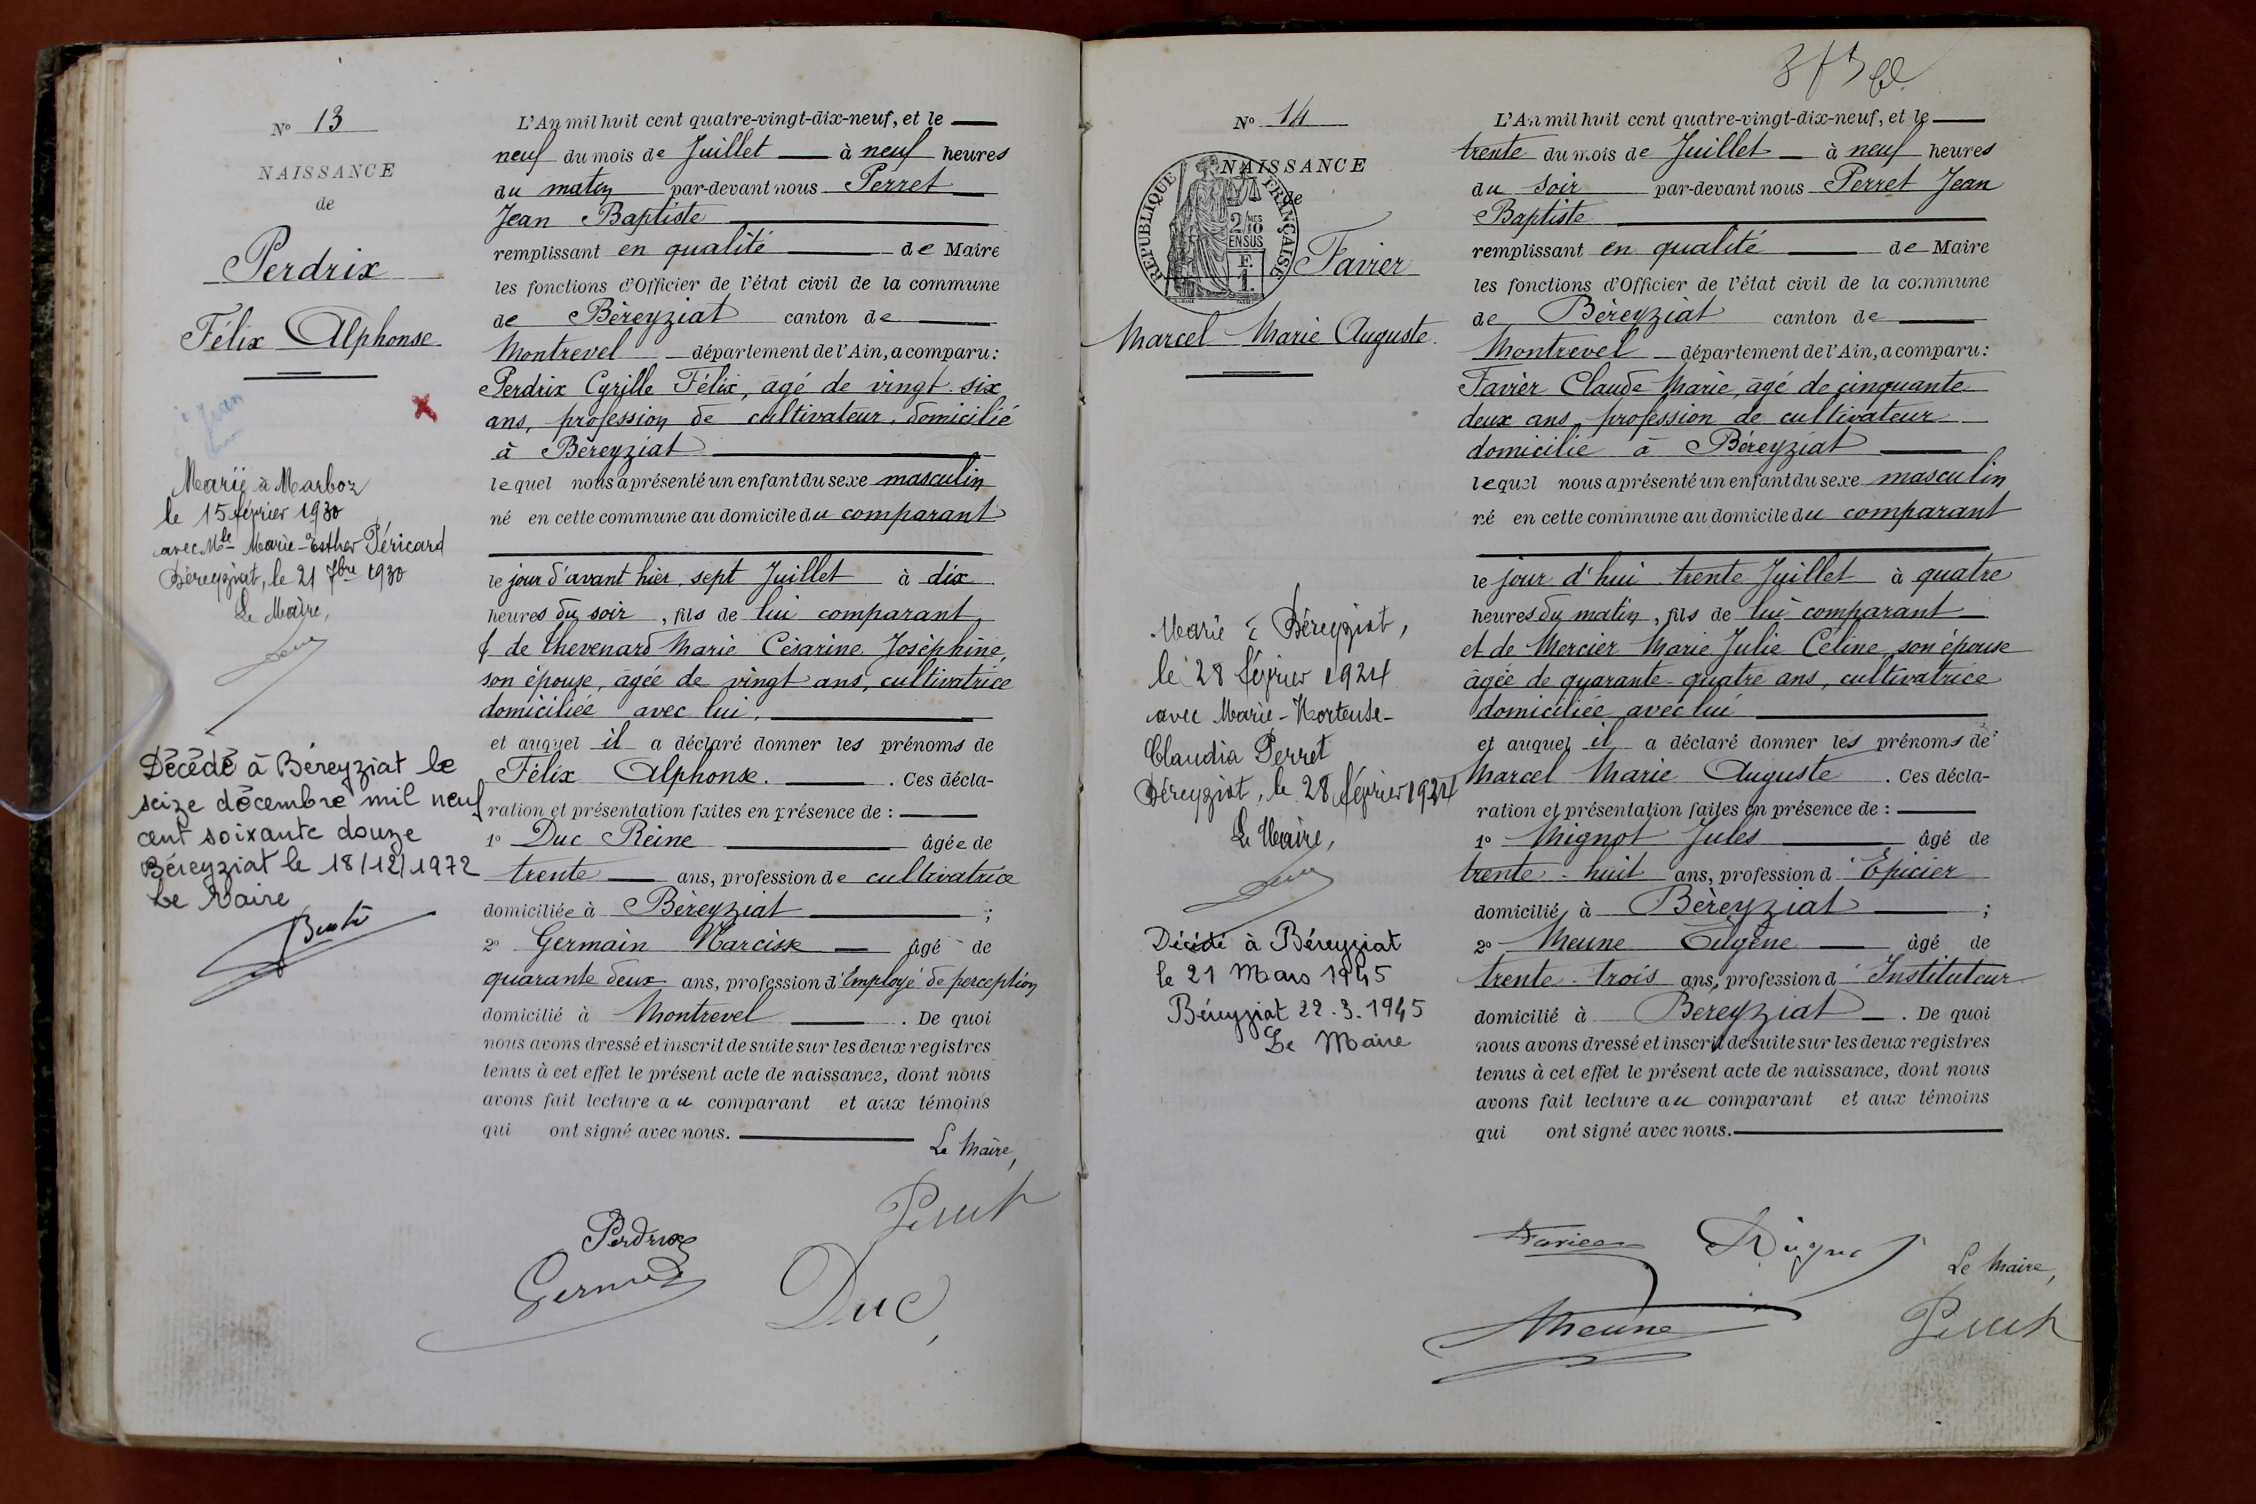 N° 13
NAISSANCE
de
Perdrix
Félix Alphonse
Jean
Marié à Marboz
le 15 février 1930
avec Mlle Marie-Esther Péricard
Béreyziat, le 21 7bre 1930
Le Maire,
Décédé à Béreyziat le
seize décembre mil neuf
cent soixante douze
Béreyziat le 18/12/1972
Le Maire
L'An mil huit cent quatre-vingt-dix-neuf, et le
neuf du mois de Juillet à neuf heures
du matin par-devant nous Perret
Jean Baptiste
remplissant en qualité de Maire
les fonctions d'Officier de l'état civil de la commune
de Béreyziat canton de
Montrevel département de l'Ain, a comparu:
Perdrix Cyrille Félix, âgé de vingt-six
ans, profession de cultivateur, domicilié
à Béreyziat
lequel nous a présenté un enfant du sexe masculin
né en cette commune au domicile du comparant
le jour d'avant hier, sept Juillet à dix
heures du soir, fils de lui comparant
& de Chevenard Marie Césarine Joséphine,
son épouse, âgée de vingt ans, cultivatrice
domiciliée avec lui,
et auquel il a déclaré donner les prénoms de
Félix Alphonse. . Ces décla-
ration et présentation faites en présence de :
1° Duc Reine âgée de
trente ans, profession de cultivatrice
domiciliée à Béreyziat ;
2° Germain Narcisse âgé de
quarante deux ans, profession d'Employé de perception
domicilié à Montrevel . De quoi
nous avons dressé et inscrit de suite sur les deux registres
tenus à cet effet le présent acte de naissance, dont nous
avons fait lecture au comparant et aux témoins
qui ont signé avec nous.
Le Maire,
Perret
Perdrix
Germain
Duc
N° 14
NAISSANCE
de
REPUBLIQUE FRANÇAISE
2/10 MES
EN SUS
F.
1.
Favier
Marcel Marie Auguste.
Marié à Béreyziat,
le 28 février 1924
avec Marie-Hortense-
Claudia Perret
Béreyziat, le 28 février 1924
Le Maire,
Décédé à Béreyziat
le 21 Mars 1945
Béreyziat 22.3.1945
Le Maire
L'An mil huit cent quatre-vingt-dix-neuf, et le
trente du mois de Juillet à neuf heures
du soir par-devant nous Perret Jean
Baptiste
remplissant en qualité de Maire
les fonctions d'Officier de l'état civil de la commune
de Béreyziat canton de
Montrevel département de l'Ain, a comparu:
Favier Claude Marie, âgé de cinquante
deux ans, profession de cultivateur
domicilié à Béreyziat
lequel nous a présenté un enfant du sexe masculin
né en cette commune au domicile du comparant
le jour d'hui trente Juillet à quatre
heures du matin, fils de lui comparant
et de Mercier Marie Julie Céline son épouse
âgée de quarante-quatre ans, cultivatrice
domiciliée avec lui
et auquel il a déclaré donner les prénoms de
Marcel Marie Auguste . Ces décla-
ration et présentation faites en présence de :
1° Mignot Jules âgé de
trente-huit ans, profession d'Epicier
domicilié à Béreyziat ;
2° Meune Eugène âgé de
trente-trois ans, profession d'Instituteur
domicilié à Béreyziat . De quoi
nous avons dressé et inscrit de suite sur les deux registres
tenus à cet effet le présent acte de naissance, dont nous
avons fait lecture au comparant et aux témoins
qui ont signé avec nous.
Favier
Mignot
Le Maire,
Meune
Perret